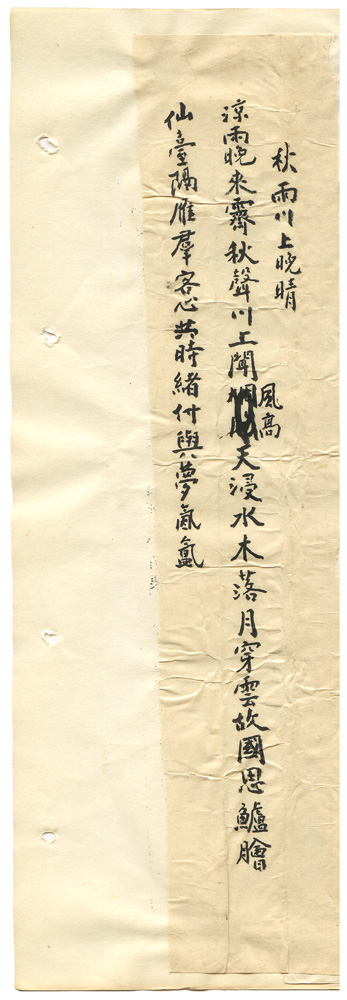 秋雨川上晚晴
涼雨晚來霽秋聲川上聞風高天浸水木落月穿雲故國思鱸膾
仙臺隔雁羣客心共時緒付與夢氤氳